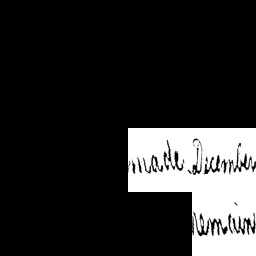 made December
remain